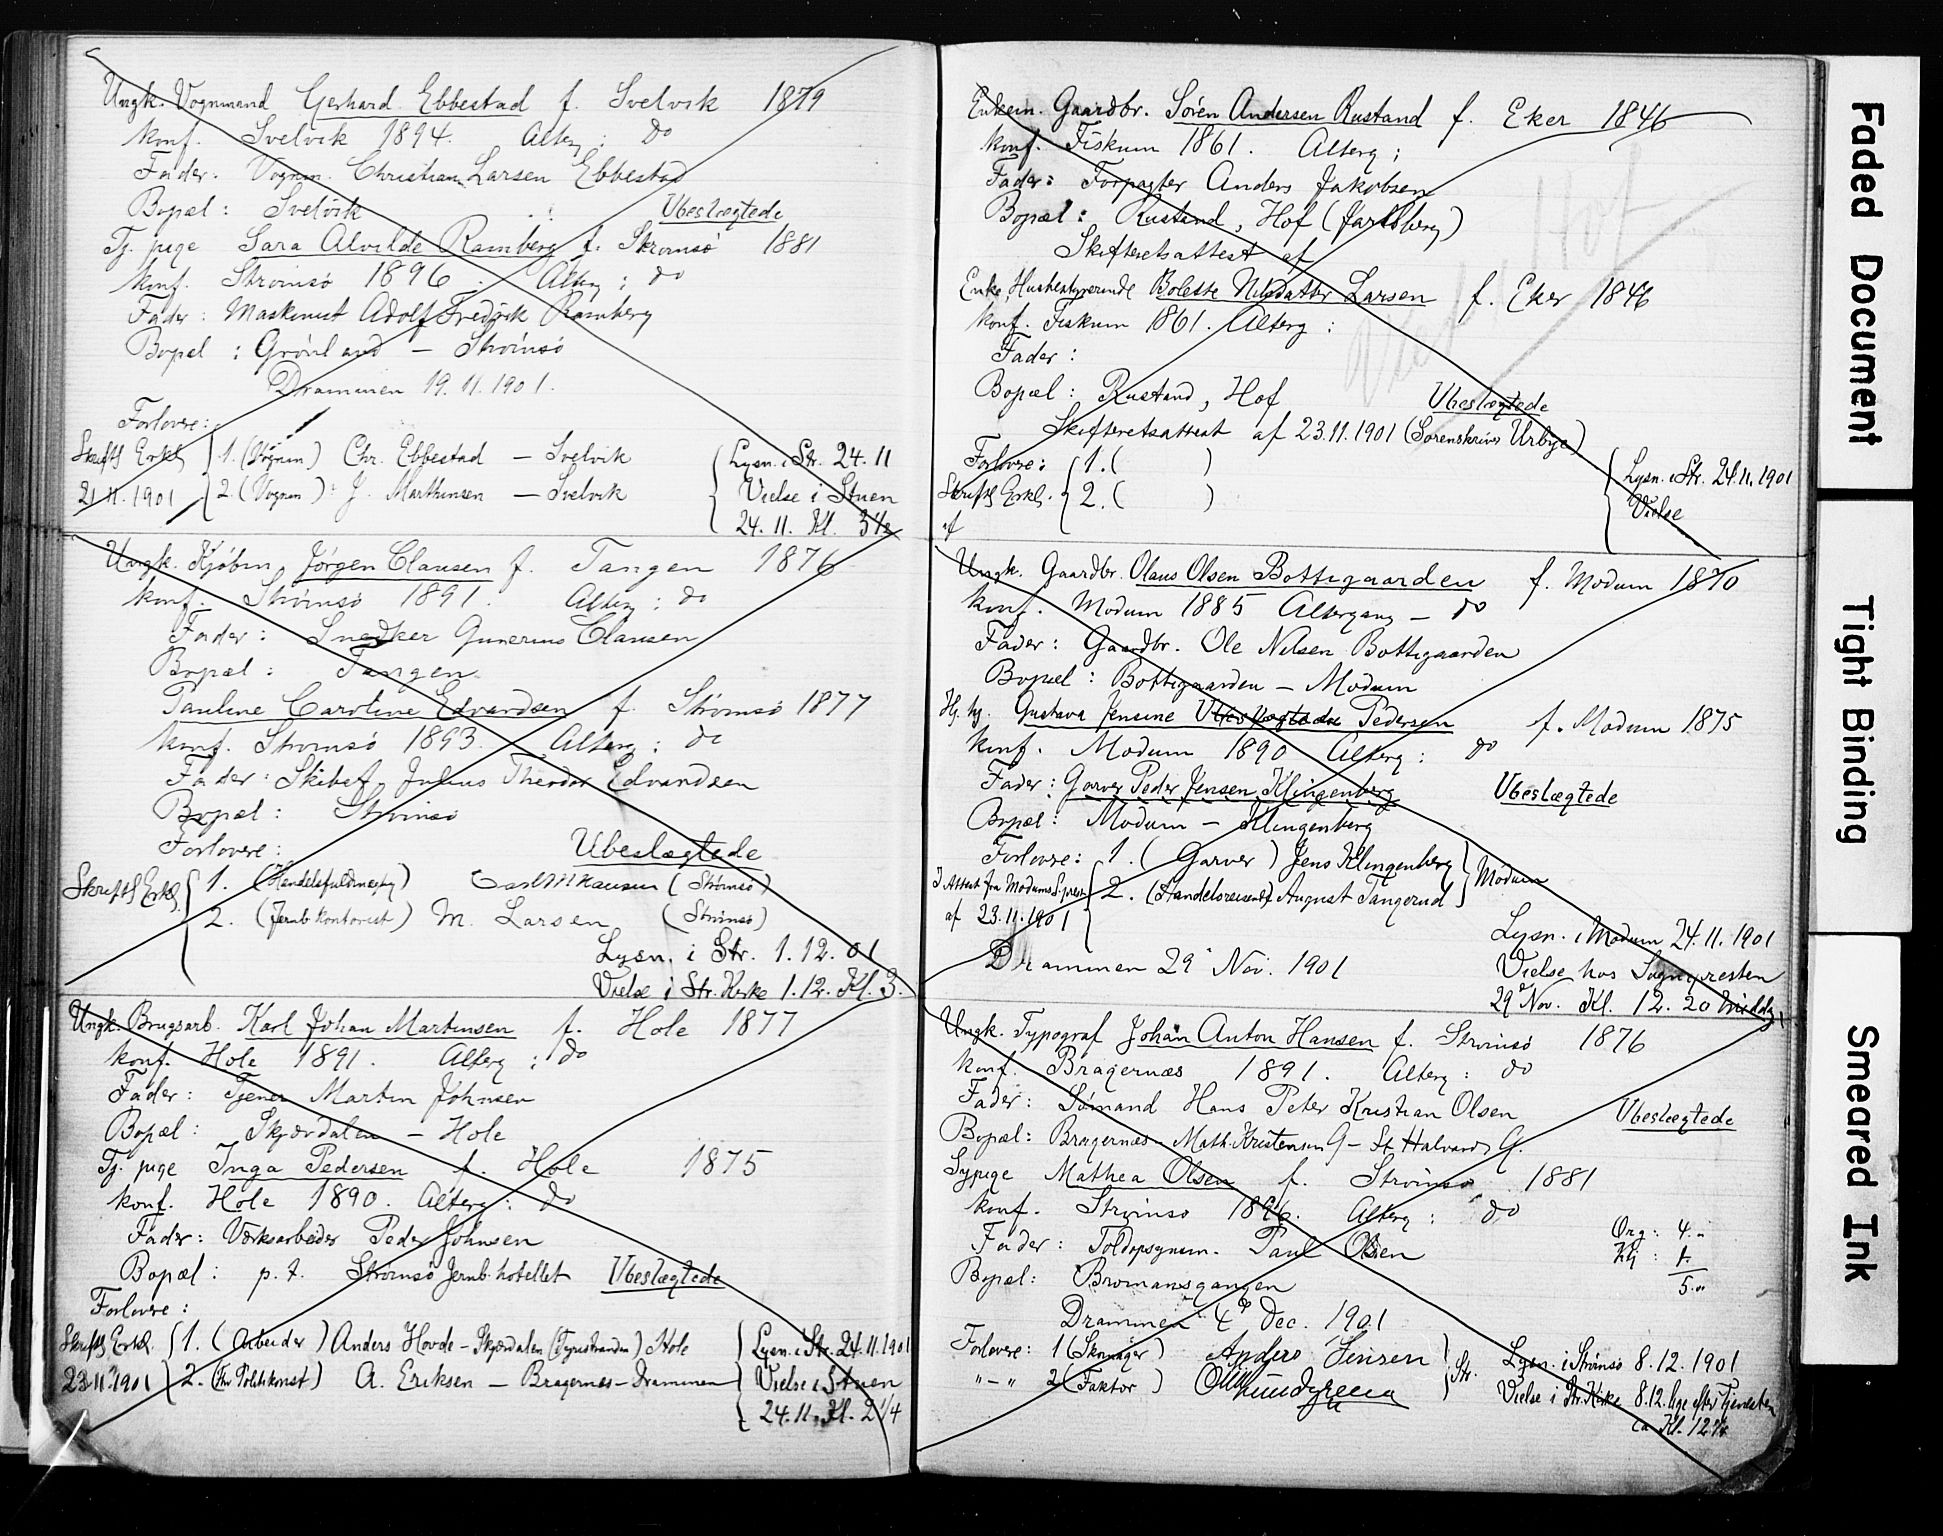 Ungk. Vognmand Gerhard Ebbestad f. Svelvik 1879
konf. Svelvik 1894. Alterg: do
Fader: Vognm. Christian Larsen Ebbestad
Bopæl: Svelvik Ubeslægtede
Tj. pige Sara Alvilde Ramberg f. Strømsø 1881
konf. Strømsø 1896. Alterg: do
Fader: Maskinist Adolf Fredrik Ramberg
Bopæl: Grønland – Strømsø
Drammen 19.11.1901.
Forlovere:
Skriftl Erkl 1. (Vognm) Chr. Ebbestad – Svelvik Lysn. i Str. 24.11
21.11.1901 2. (Vognm): J. Marthinsen – Svelvik Vielse i Stuen
24.11. Kl. 3½
Ungk. Kjøbm. Jørgen Clausen f. Tangen 1876
konf. Strømsø 1891. Alterg: do
Fader: Snedker Gunerius Clausen
Bopæl: Tangen
Pauline Caroline Edvardsen f. Strømsø 1877
konf. Strømsø 1893. Alterg: do
Fader: Skibef. Julius Theodor Edvardsen
Bopæl: Strømsø
Forlovere: Ubeslægtede
Skriftl Erkl. 1. (Handelsfuldmægtig) (Strømsø)
2. (Jernb kontorist) M. Larsen (Strømsø)
Lysn. i Str. 1.12.01
Vielse i Str. Kirke 1.12. Kl. 3.
Ungk. Brugsarb. Karl Johan Martinsen f. Hole 1877
konf. Hole 1891. Alterg: do
Fader: Tjener Martin Johnsen
Bopæl: Skjærdalen – Hole
Tj. pige Inga Pedersen f. Hole 1875
konf. Hole 1890. Alterg: do
Fader: Værksarbeider Peder Johnsen
Bopæl: p.t. Strømsø Jernb. hotellet Ubeslægtede
Forlovere:
Skriftl Erkl. 1. (Arbeider) Anders Hovde – Skjærdalen (Tyristranden) Hole Lysn. i Str. 24.11.1901
23.11.1901 2. A. Eriksen – Bragernes – Drammen Vielse i Stuen
24.11. Kl. 2¼
Enkem. Gaardbr. Søren Andersen Rustand f. Eker 1846
konf. Fiskum 1861. Alterg:
Fader: Forpagter Anders Jakobsen
Bopæl: Rustand, Hof (Jarlsberg)
Skifteretsattest af
Enke, Husbestyrerinde Bolette Nilsdatter Larsen f. Eker 1846
konf. Fiskum 1861. Alterg:
Fader:
Bopæl: Rustand, Hof Ubeslægtede
Skifteretsattest af 23.11.1901 (Sorenskriver Urbye)
Forlovere: 1. ( ) Lysn. i Str. 24.11.1901
Skriftl Erkl. 2. ( ) Vielse
af
Viet i Hof
Ungk. Gaardbr. Olaus Olsen Bottegaarden f. Modum 1870
konf. Modum 1885 Altergang – do
Fader: Gaardbr. Ole Nilsen Bottegaarden
Bopæl: Bottegaarden – Modum
Hj. hj. Gustava Jensine Ubeslægtede Pedersen f. Modum 1875
konf. Modum 1890 Alterg: do
Fader: Garver Peder Jensen Klingenberg Ubeslægtede
Bopæl: Modum – Klingenberg
Forlovere: 1. (Garver) Jens Klingenberg Modum
I Attest fra Modums S.prest 2. (Handelsreisende) August Tangerud
af 23.11.1901
Lysn. i Modum 24.11.1901
Drammen 29 Nov. 1901 Vielse hos Sognepresten
29 Nov. Kl. 12.20 middg.
Ungk. Typograf Johan Anton Hansen f. Strømsø 1876
konf. Bragernæs 1891. Alterg: do
Fader: Sømand Hans Peter Kristian Olsen Ubeslægtede
Bopæl: Bragernæs – Math. Kristensen G – St Halvards G.
Sypige Mathea Olsen f. Strømsø 1881
konf. Strømsø 1896. Alterg: do
Org: 4.„
Fader: Toldopsynsm. Paul Olsen Klj: 1.
Bopæl: Bromansgangen 5.„
Drammen 4 Dec. 1901
Forlovere: 1 (Skomager) Anders Jensen Str. Lysn. i Strømsø 8.12.1901
"–" 2 (Faktor) Vielse i Str. Kirke 8.12. lige efter Tjenesten
ca Kl. 12¾
Faded Document
Tight Binding
Smeared Ink